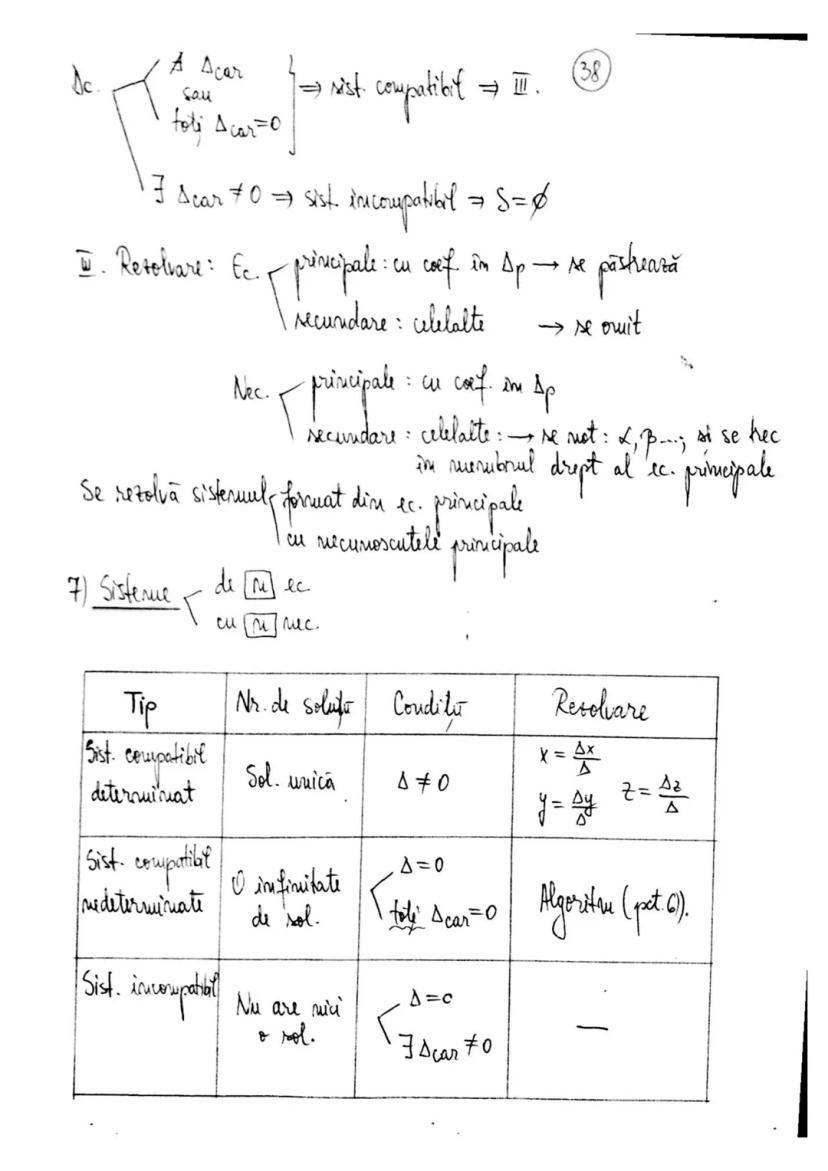 38
Dc.
∄ Δcar
sau
toți Δcar=0
⇒ sist. compatibil ⇒ III.
∃ Δcar ≠ 0 ⇒ sist. incompatibil ⇒ S=∅
III. Rezolvare: Ec. principale: cu coef. în Δp → se păstrează
secundare: celelalte → se omit
Nec. principale: cu coef. în Δp
secundare: celelalte: → se not: α, β...; și se trec
în membrul drept al ec. principale
Se rezolvă sistemul format din ec. principale
cu necunoscutele principale
7) Sisteme de n ec.
cu n nec.
Tip Nr. de soluții Condiții Rezolvare
Sist. compatibil determinat
Sol. unică
Δ ≠ 0
x = Δx/Δ
y = Δy/Δ z = Δz/Δ
Sist. compatibil
nedeterminate
O infinitate
de sol.
Δ=0
toți Δcar=0
Algoritm (pct. 6)).
Sist. incompatibil
Nu are nici
o sol.
Δ=0
∃ Δcar ≠ 0
—